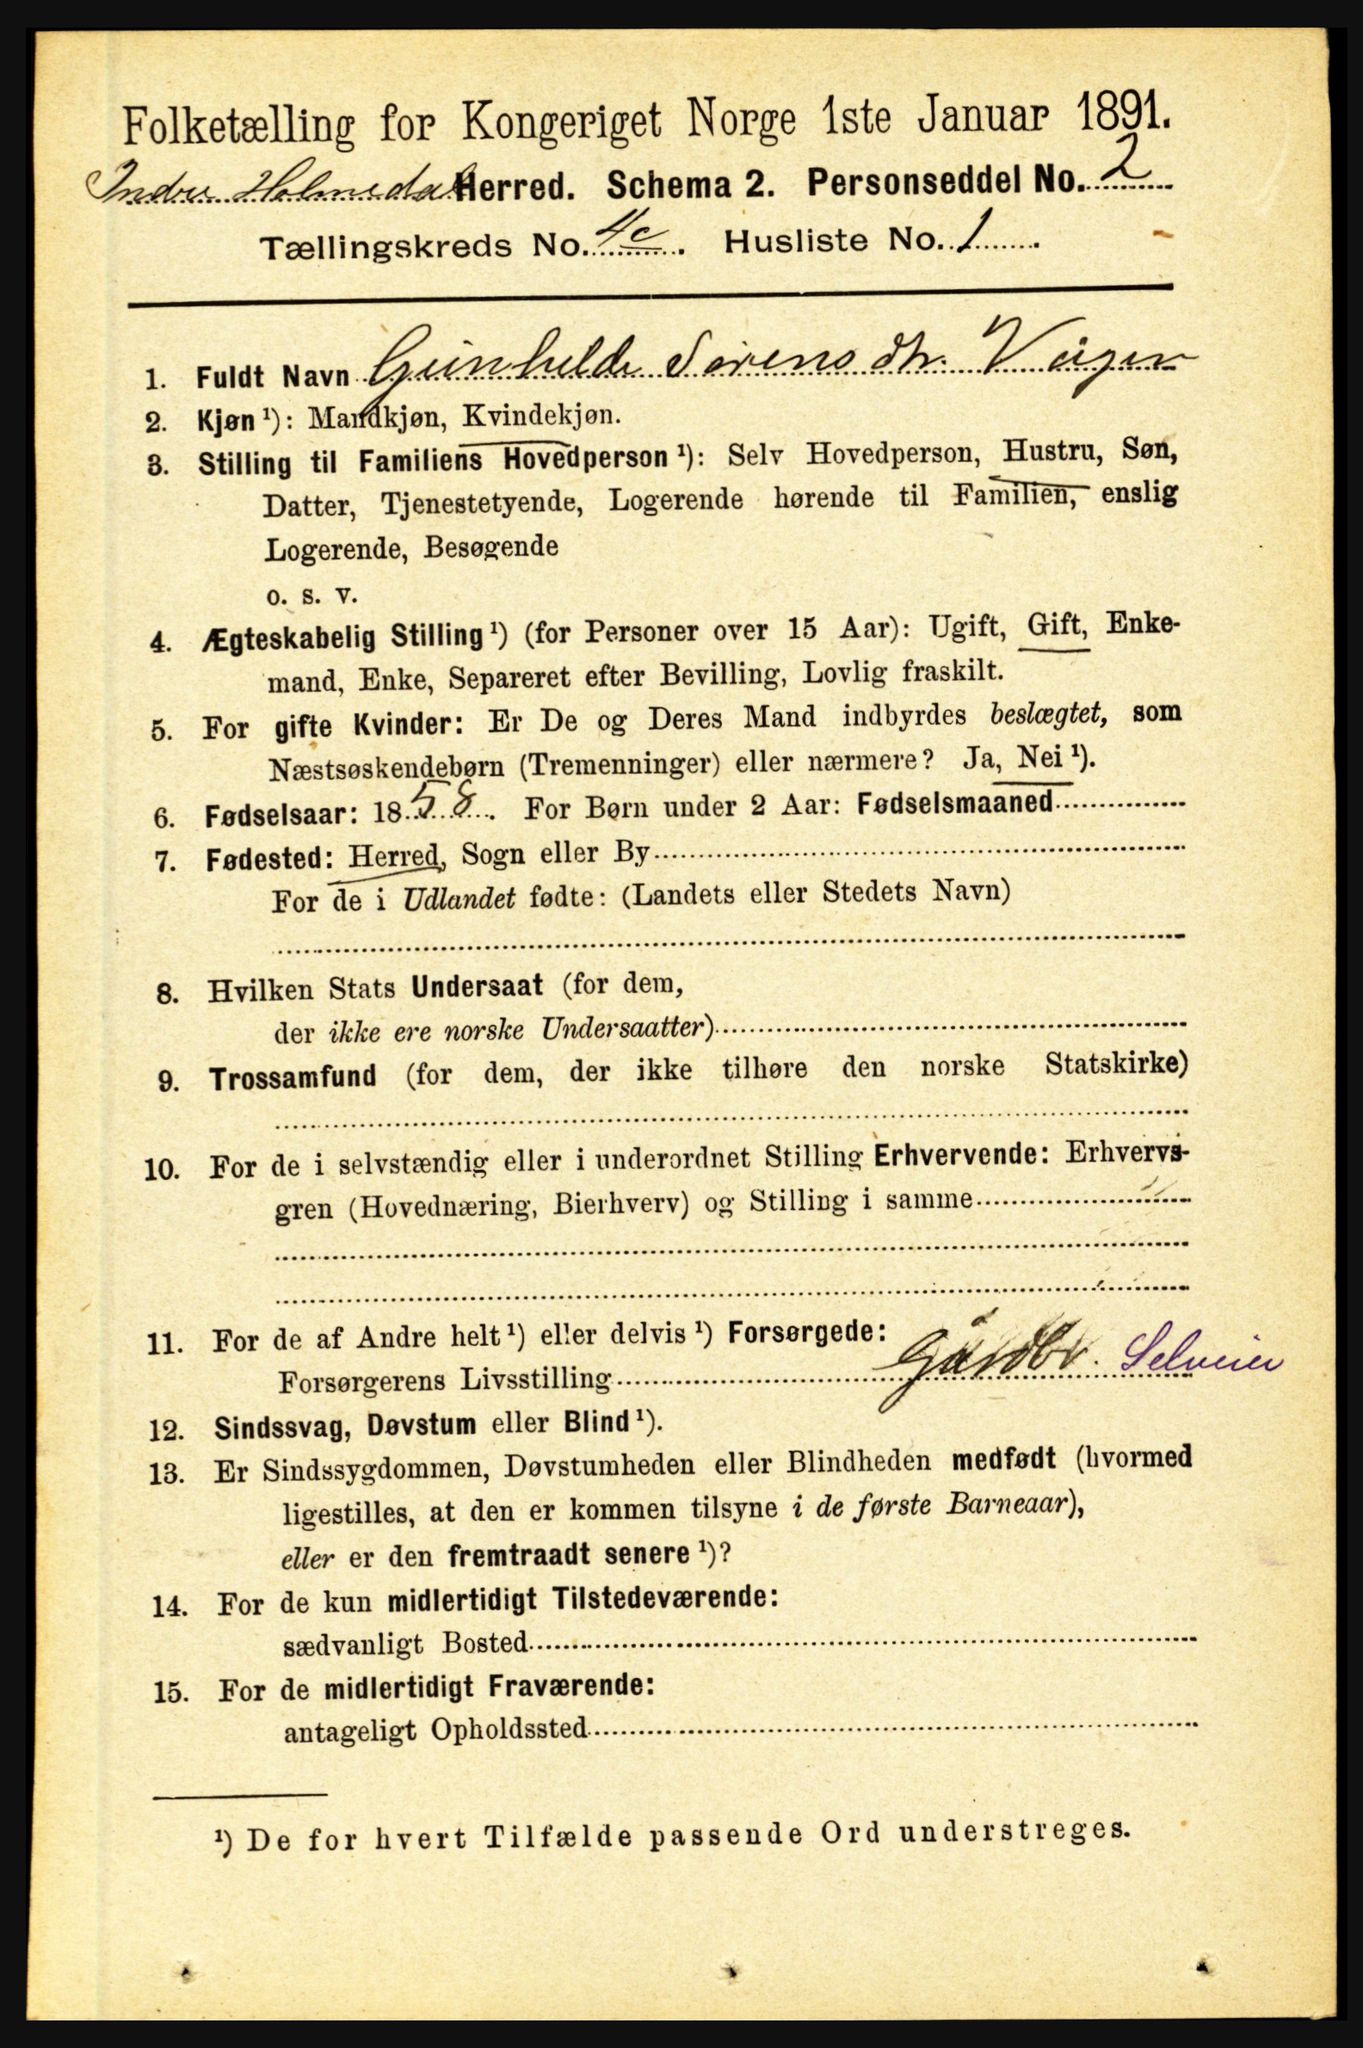 Folketælling for Kongeriget Norge 1ste Januar 1891.
Indre Holmedal Herred. Schema 2. Personseddel No. 2
Tællingskreds No. 4c. Husliste No. 1.
1. Fuldt Navn Gunhilde Sørensdtr. Vaagen
2. Kjøn ¹): Mandkjøn, Kvindekjøn.
3. Stilling til Familiens Hovedperson ¹): Selv Hovedperson, Hustru, Søn,
Datter, Tjenestetyende, Logerende hørende til Familien, enslig
Logerende, Besøgende
o. s. v.
4. Ægteskabelig Stilling ¹) (for Personer over 15 Aar): Ugift, Gift, Enke-
mand, Enke, Separeret efter Bevilling, Lovlig fraskilt.
5. For gifte Kvinder: Er De og Deres Mand indbyrdes beslægtet, som
Næstsøskendebørn (Tremenninger) eller nærmere? Ja, Nei ¹).
6. Fødselsaar: 1858. For Børn under 2 Aar: Fødselsmaaned
7. Fødested: Herred, Sogn eller By
For de i Udlandet fødte: (Landets eller Stedets Navn)
8. Hvilken Stats Undersaat (for dem,
der ikke ere norske Undersaatter)
9. Trossamfund (for dem, der ikke tilhøre den norske Statskirke)
10. For de i selvstændig eller i underordnet Stilling Erhvervende: Erhvervs-
gren (Hovednæring, Bierhverv) og Stilling i samme
11. For de af Andre helt ¹) eller delvis ¹) Forsørgede:
Forsørgerens Livsstilling Gårdbr. Selveier
12. Sindssvag, Døvstum eller Blind ¹).
13. Er Sindssygdommen, Døvstumheden eller Blindheden medfødt (hvormed
ligestilles, at den er kommen tilsyne i de første Barneaar),
eller er den fremtraadt senere ¹)?
14. For de kun midlertidigt Tilstedeværende:
sædvanligt Bosted
15. For de midlertidigt Fraværende:
antageligt Opholdssted
¹) De for hvert Tilfælde passende Ord understreges.